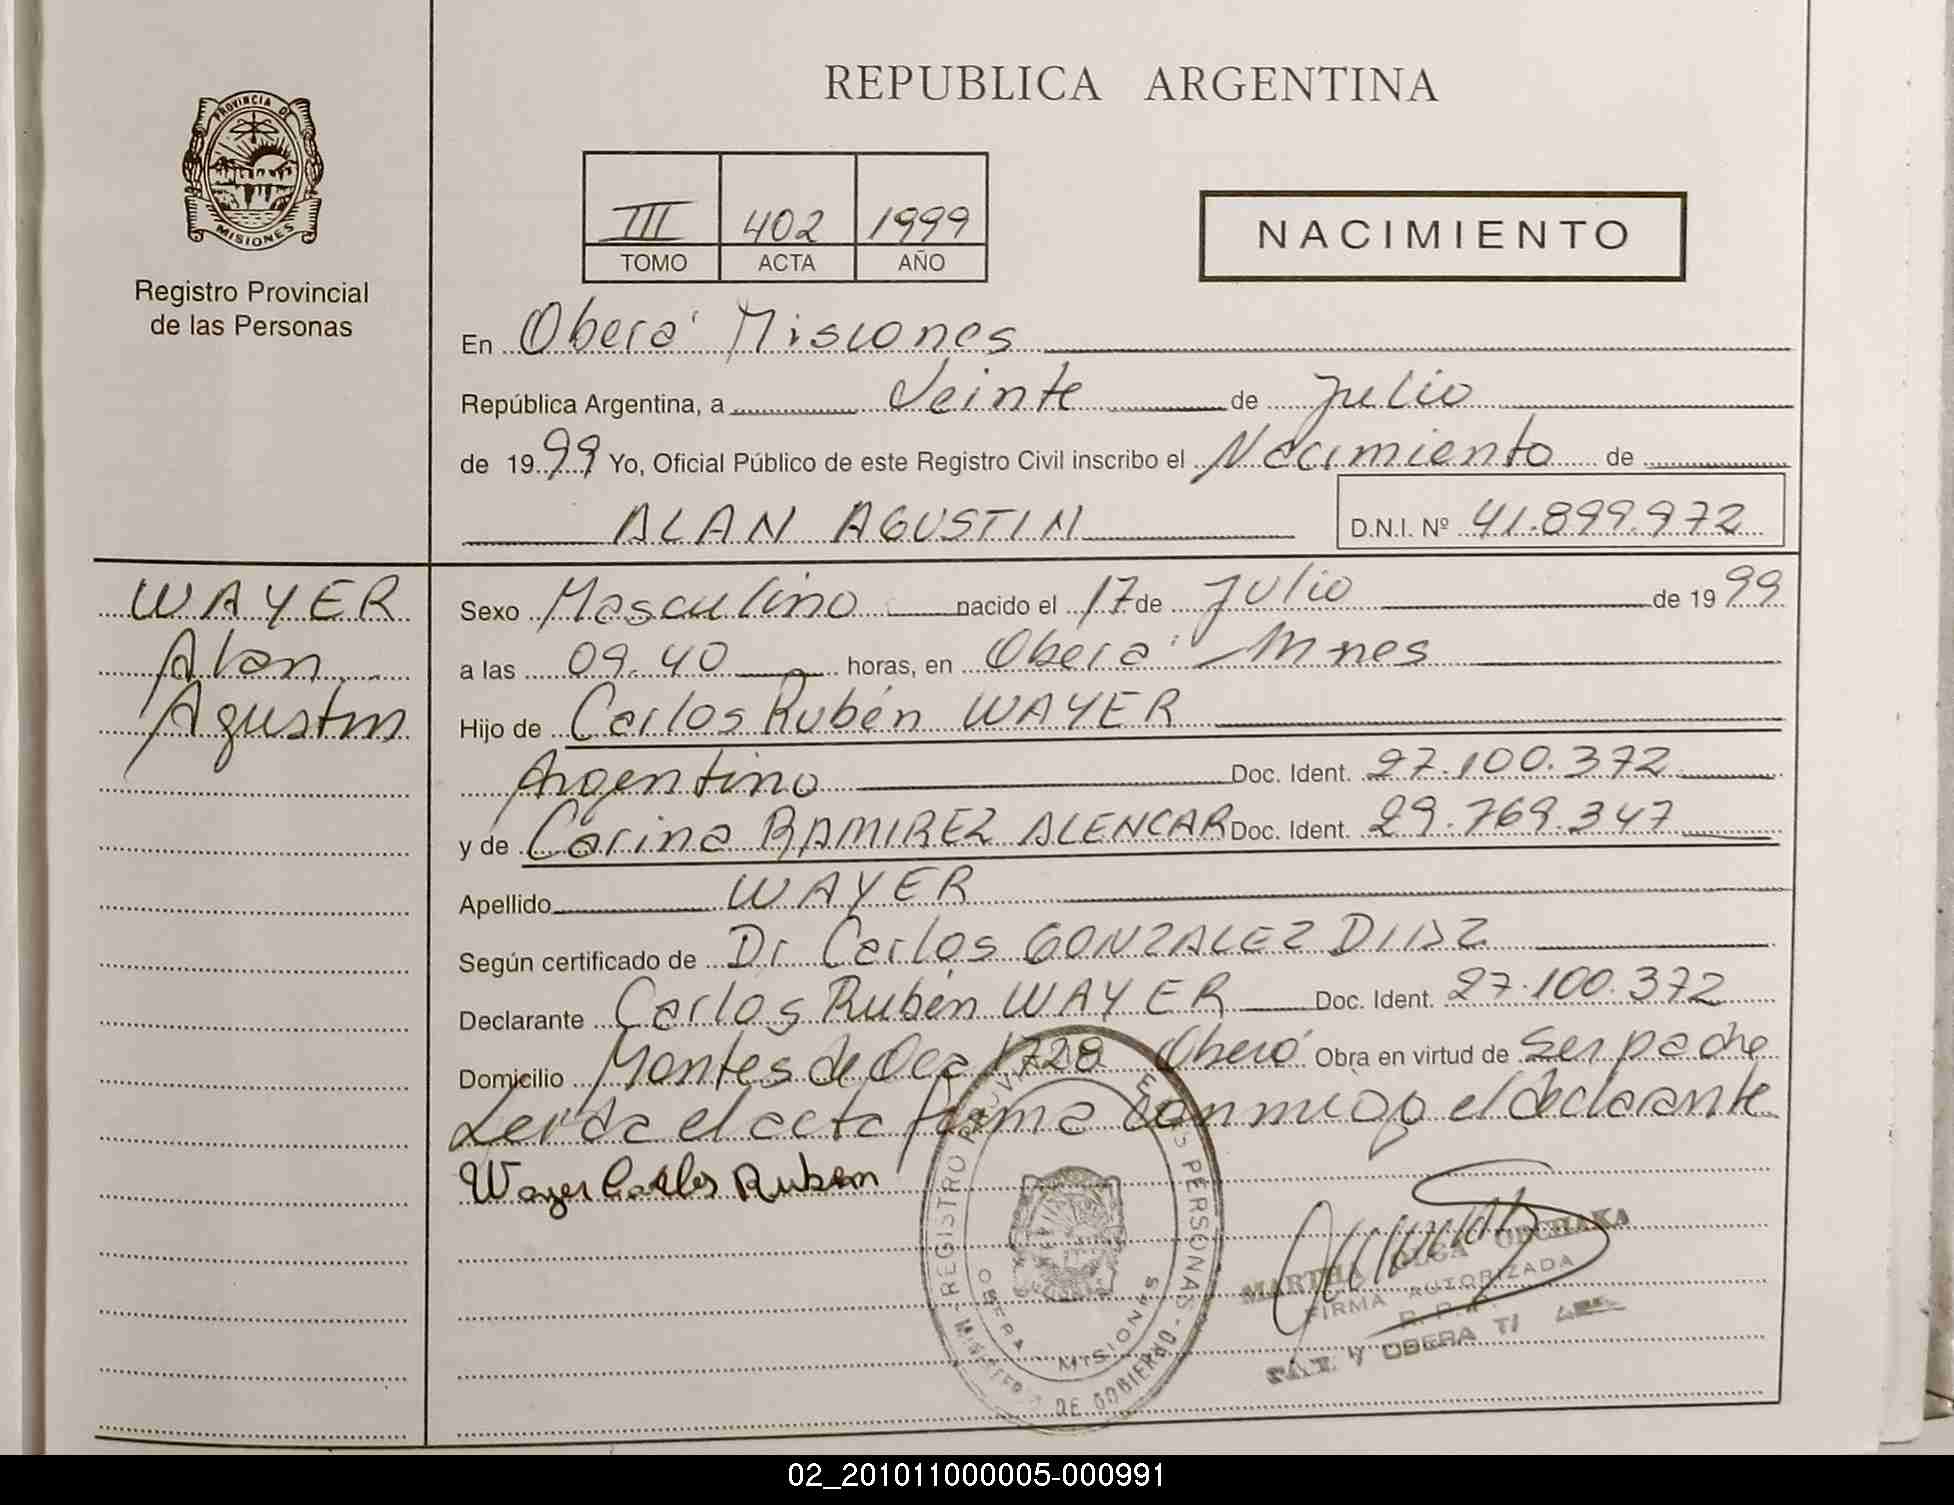 REPUBLICA ARGENTINA
PROVINCIA DE
MISIONES
Registro Provincial
de las Personas
III 402 1999
TOMO ACTA AÑO
NACIMIENTO
En Oberá Misiones
República Argentina, a Veinte de Julio
de 1999 Yo, Oficial Público de este Registro Civil inscribo el Nacimiento de
ALAN AGUSTIN D.N.I. Nº 41.899.972
WAYER
Alan
Agustin
Sexo Masculino nacido el 17 de Julio de 1999
a las 09.40 horas, en Oberá Mnes
Hijo de Carlos Rubén WAYER
Argentino Doc. Ident. 27.100.372
y de Carina RAMIREZ ALENCAR Doc. Ident. 29.769.347
Apellido WAYER
Según certificado de Dr Carlos GONZALEZ DIAZ
Declarante Carlos Rubén WAYER Doc. Ident. 27.100.372
Domicilio Montes de Oca 1728 Oberá Obra en virtud de Ser padre
Leída el acta firma conmigo el declarante
Wayer Carlos Ruben
REGISTRO PERSONAS
OBERA - MISIONES
MINISTERIO DE GOBIERNO
MARTHA OLGA
FIRMA AUTORIZADA
OBERA
02_201011000005-000991